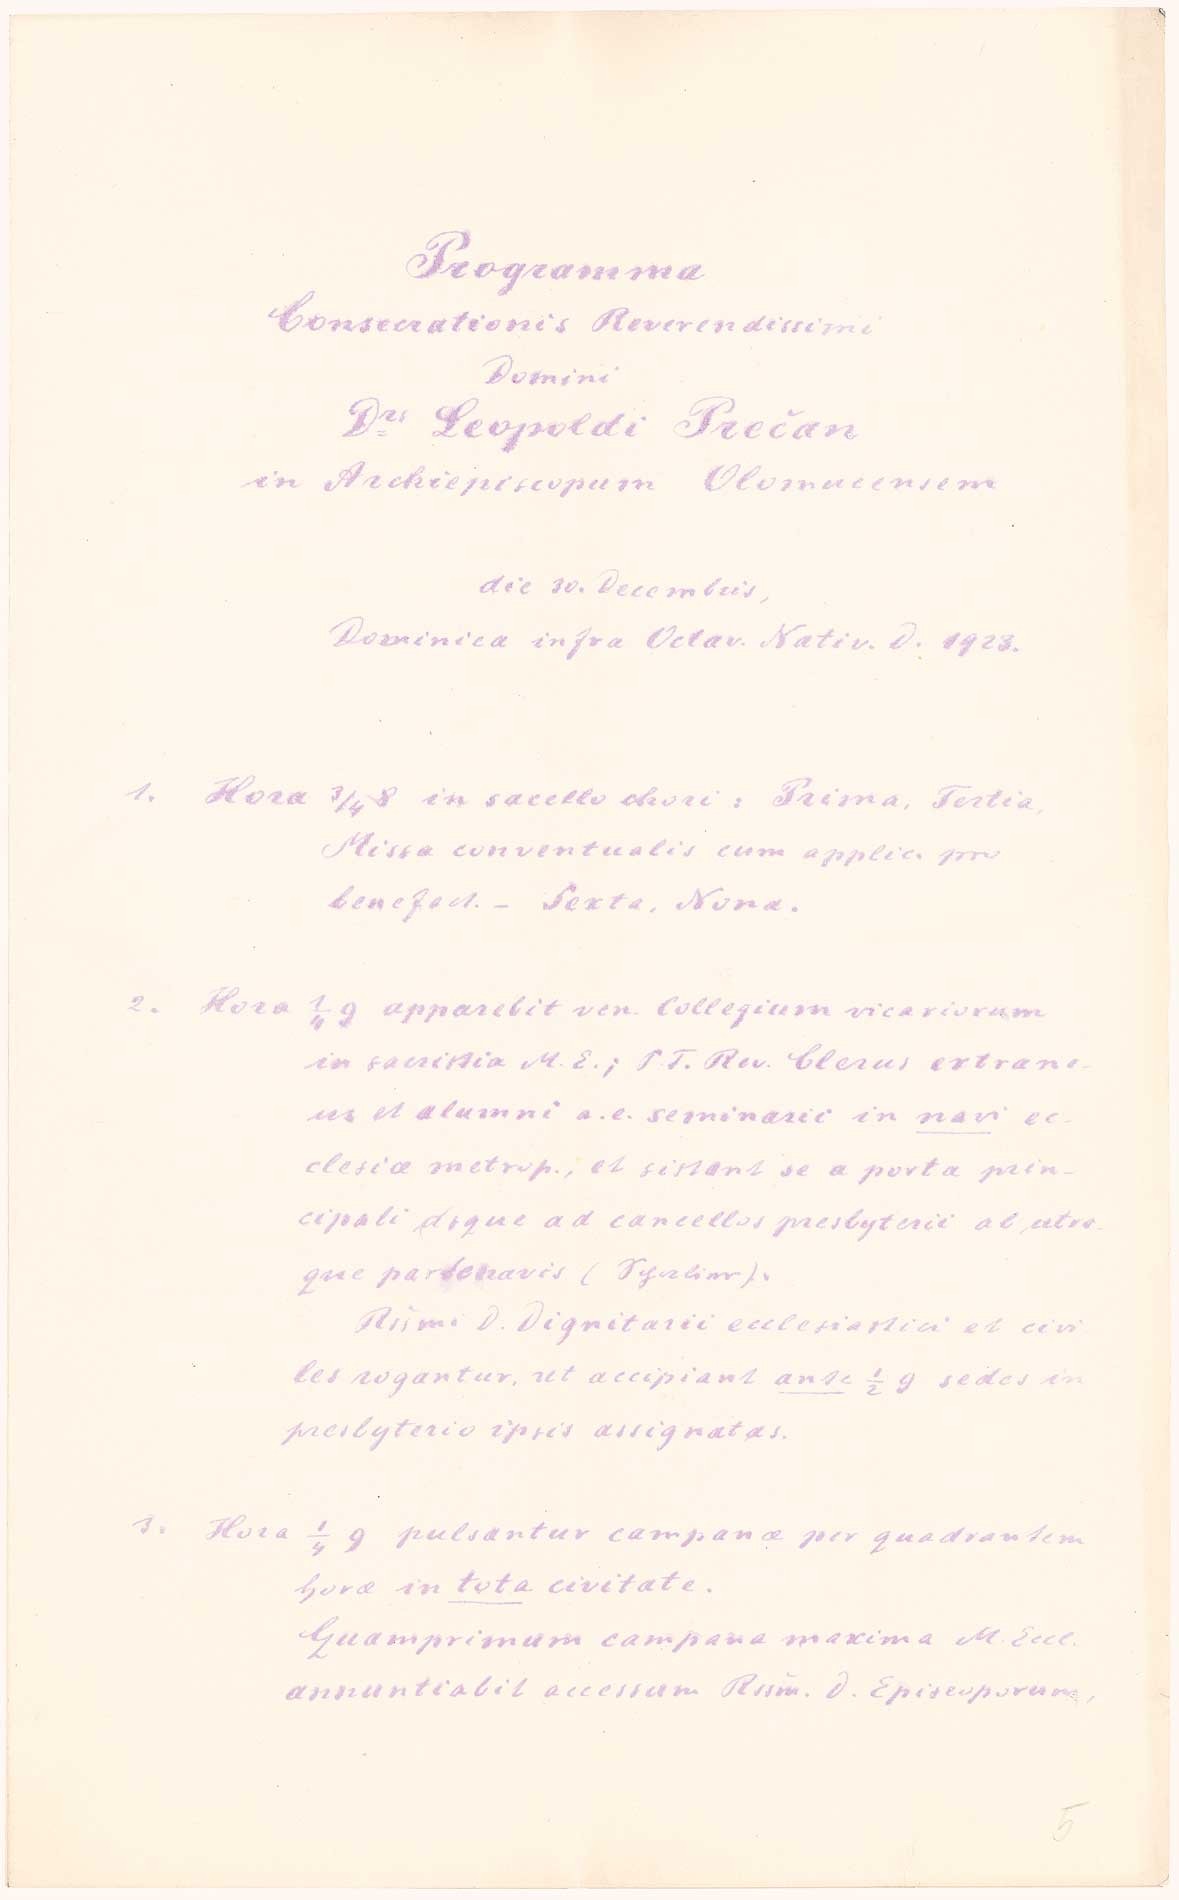 Programma
Consecrationis Reverendissimi
Domini
Drs Leopoldi Prečan
in Archiepiscopum Olomucensem
die 30. Decembris,
Dominica infra Octav. Nativ. D. 1923.
1. Hora 3/4 8 in sacello chori: Prima, Tertia,
Missa conventualis cum applic. pro
benefact. – Sexta, Nona.
2. Hora 1/4 9 apparebit ven. Collegium vicariorum
in sacristia M. E.; P. T. Rev. Clerus extrane-
us et alumni a. e. seminarii in navi ec-
clesiæ metrop., et sistant se a porta prin-
cipali usque ad cancellos presbyterii ab utra-
que parte navis
Rss̃mi D. Dignitarii ecclesiastici et civi
les rogantur, ut accipiant ante 1/2 9 sedes in
presbyterio ipsis assignatas.
3. Hora 1/4 9 pulsantur campanæ per quadrantem
horæ in tota civitate.
Quamprimum campana maxima M. Eccl.
annuntiabit accessum Rssm̃. D. Episcoporum,
5